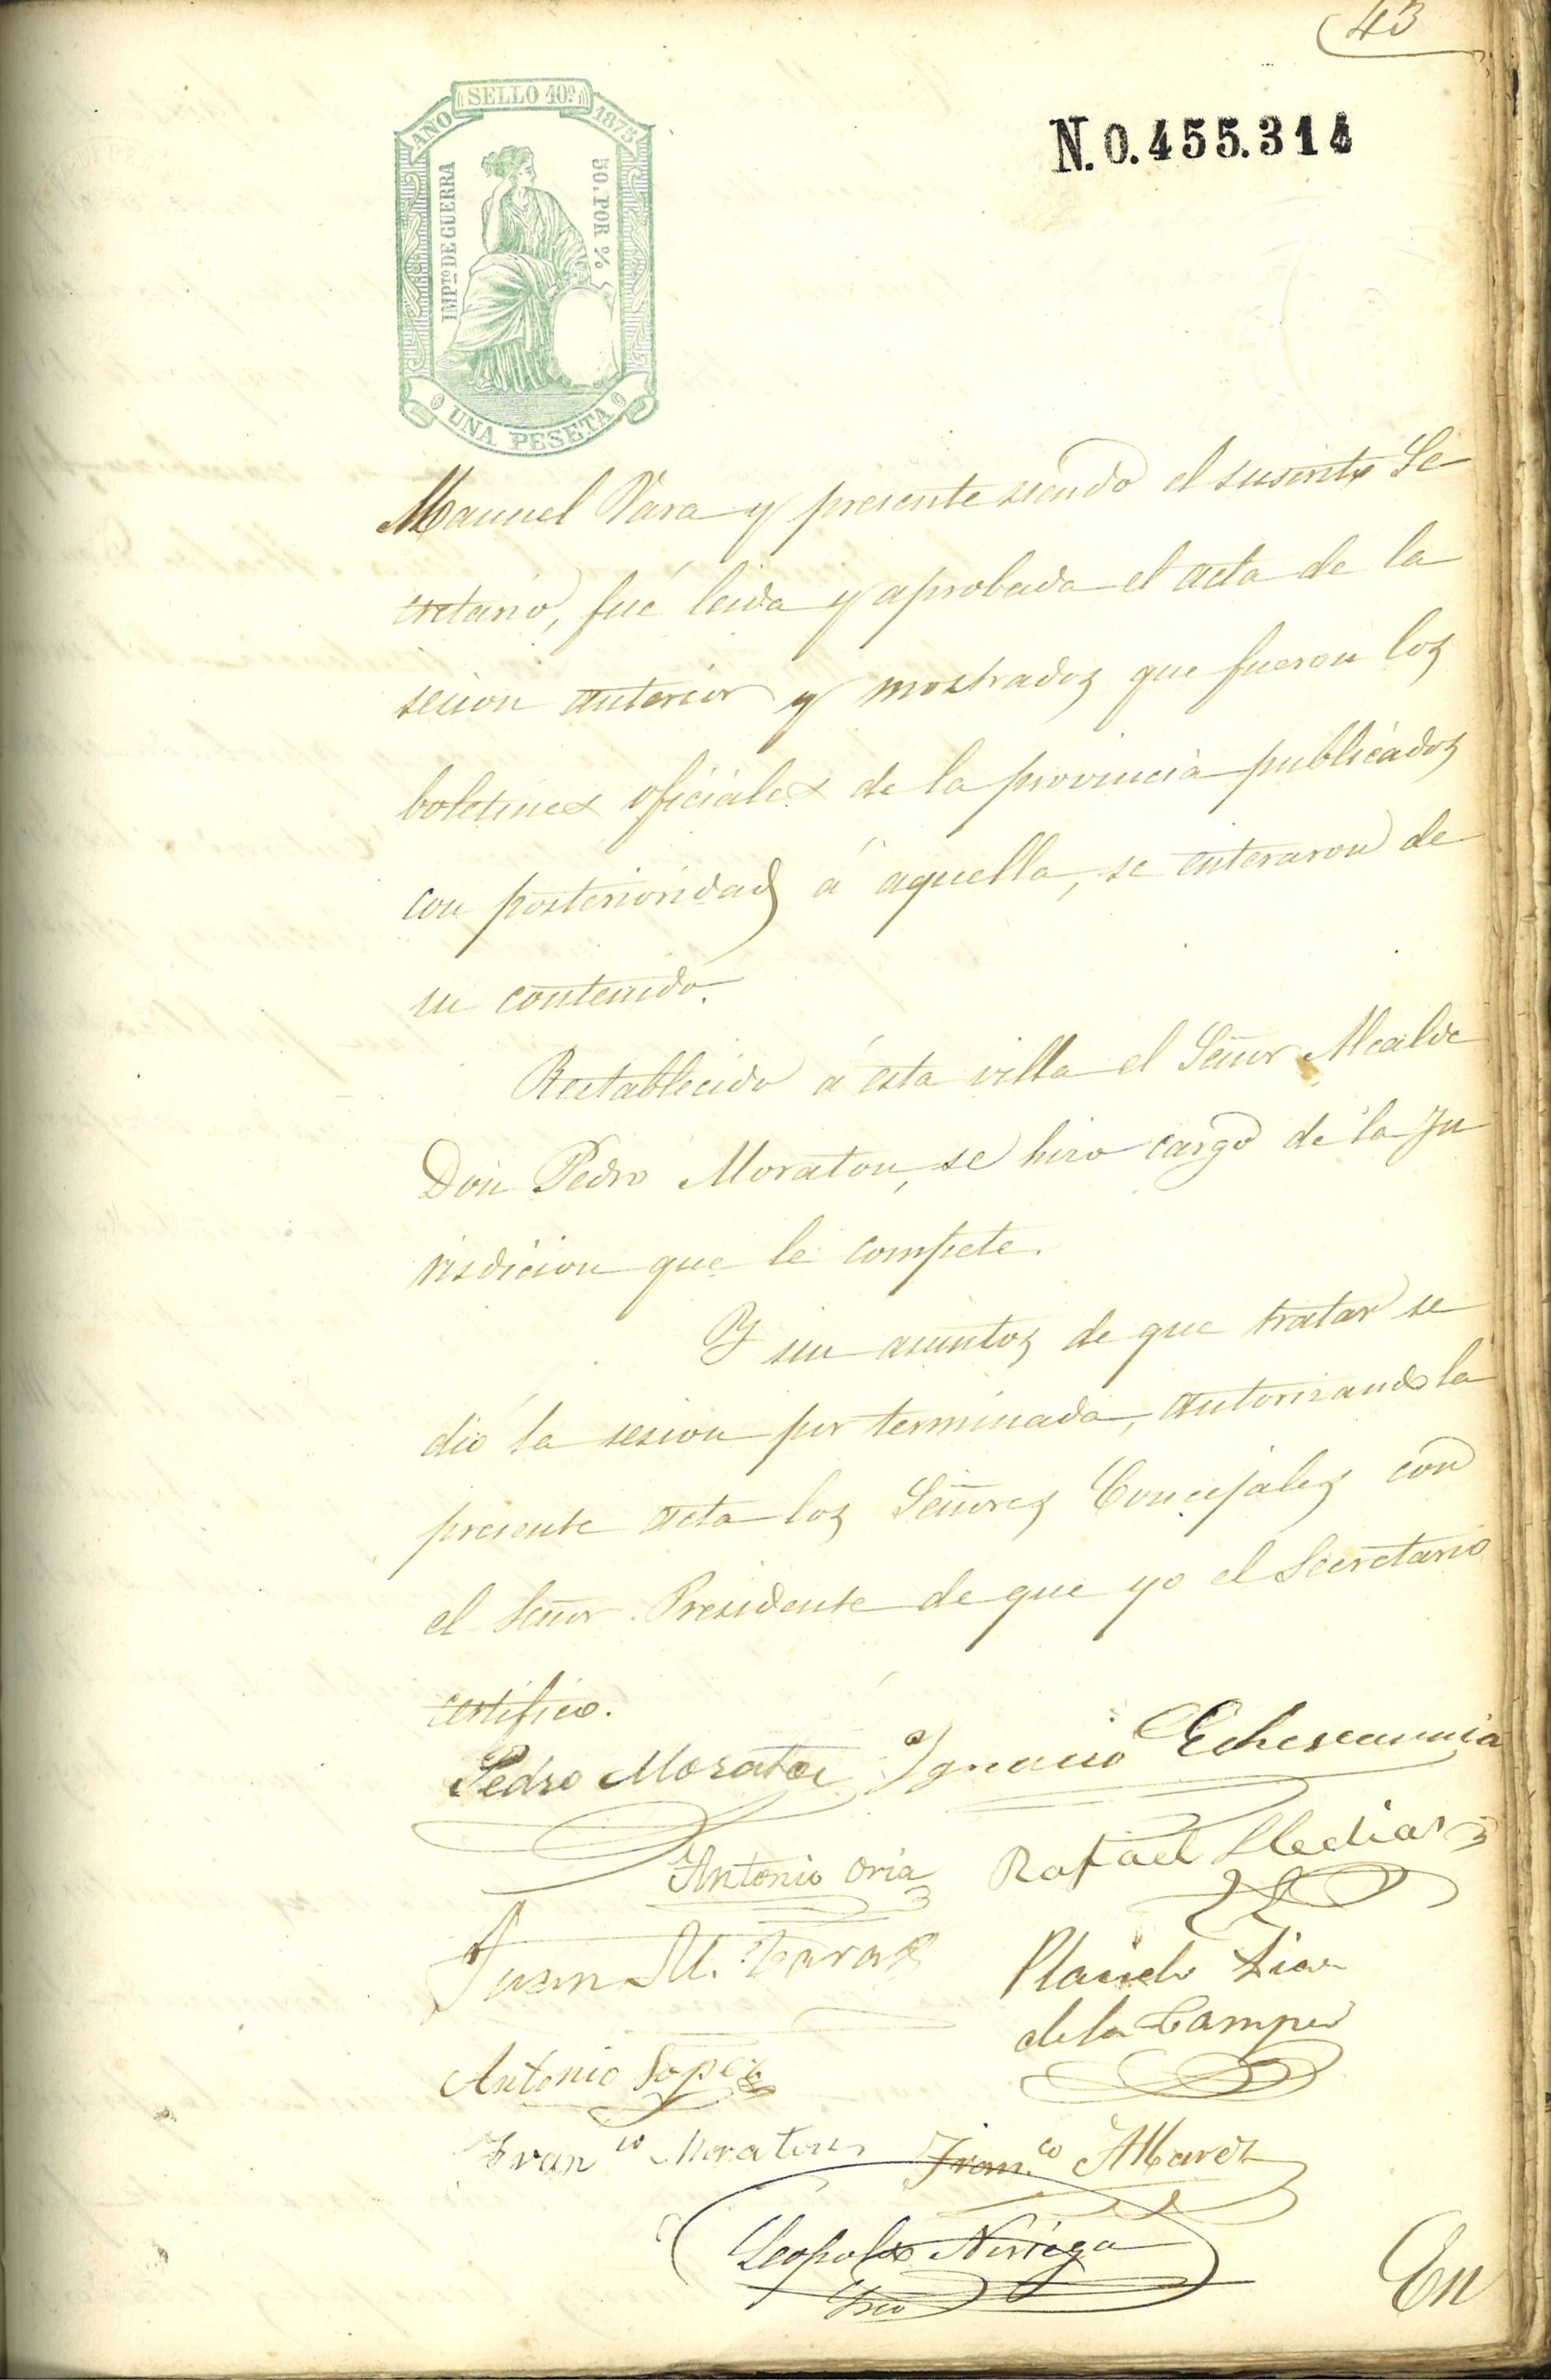 43
SELLO 10º
AÑO 1875
IMPTO DE GUERRA
50. POR %
UNA PESETA
N. 0.455.314
Manuel Vara y presente siendo el Se-
cretario, fué leida y aprobada el acta de la
sesion anterior y mostrados que fueron los
boletines oficiales de la provincia publicados
con posterioridad á aquella, se enteraron de
su contenido.
Restablecido á esta villa el Señor Alcalde
Don Pedro Moraton, se hizo cargo de la Ju
risdicion que le compete.
Y sin asuntos de que tratar se
dió la sesion por terminada, autorizando la
presente acta los Señores Concejales con
el Señor Presidente de que yo el Secretario
certifico.
Pedro Moraton Ignacio
Antonio Oria Rafael
Juan M. Placido Diaz
de la Campa
Antonio Lopez
Franco Moraton Fran.co Alvarez
Leopoldo Noriega
Srio
En